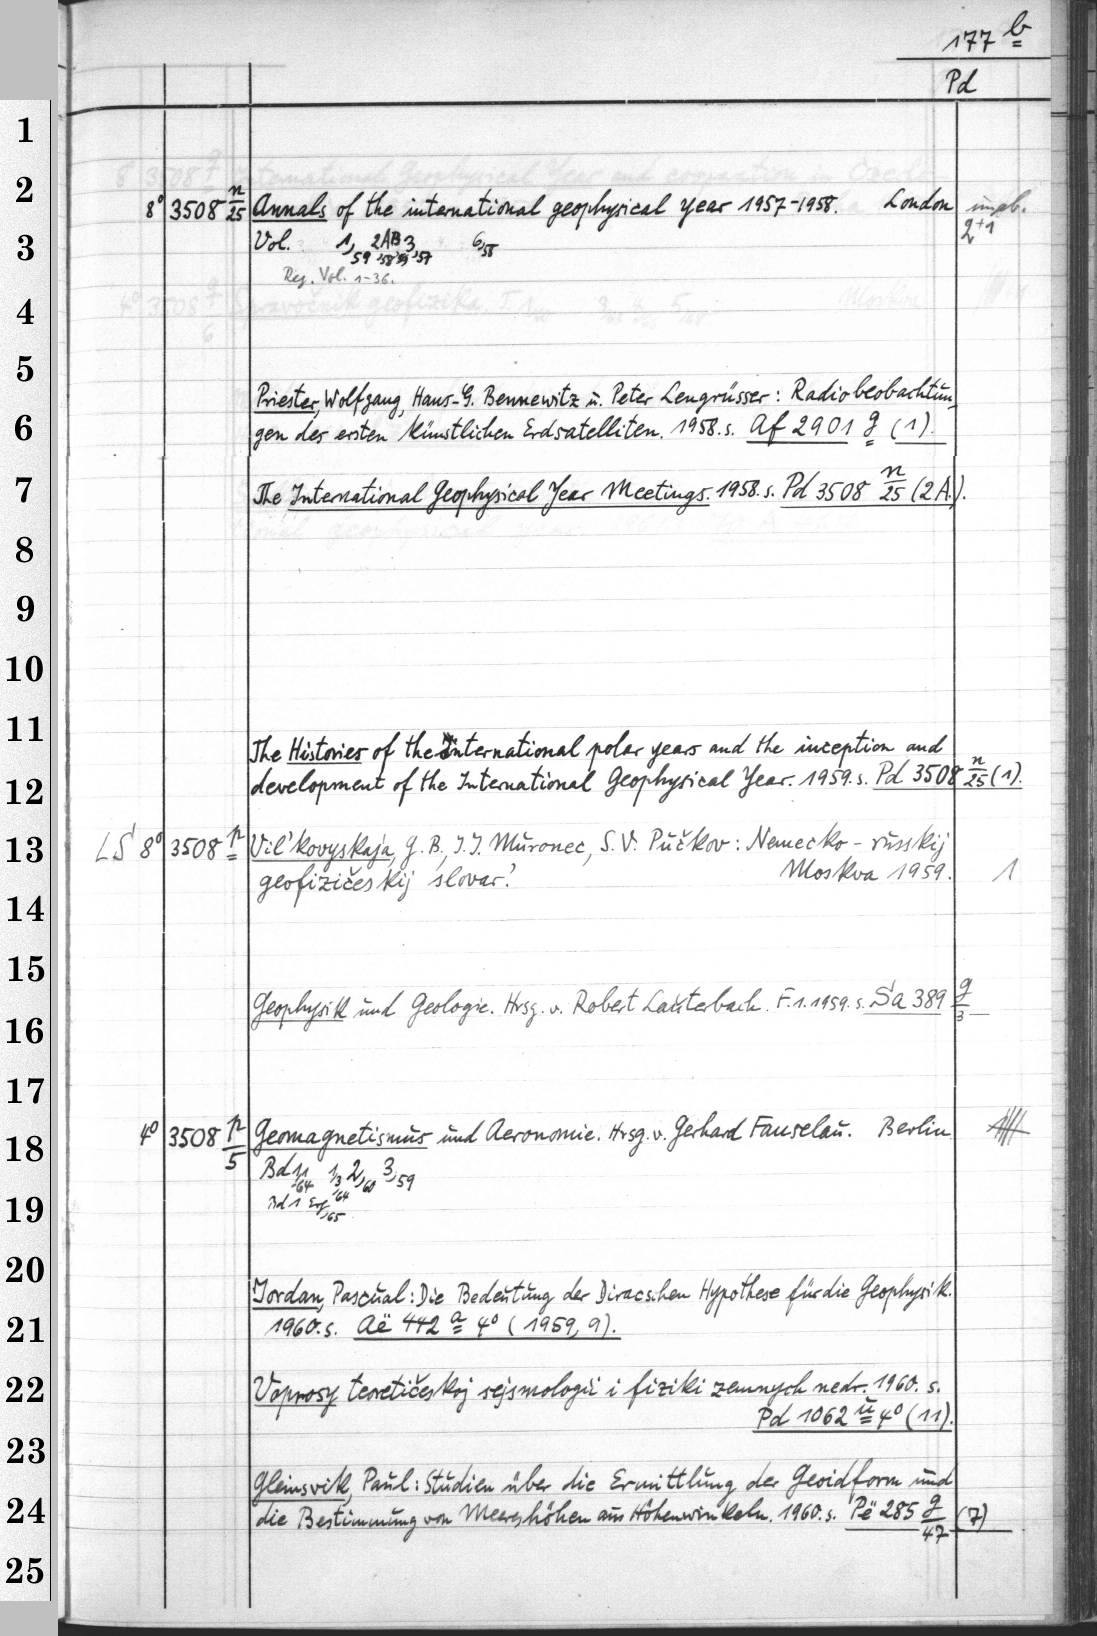 177 b
Pd
1
2
8° 3508 n/25 Annals of the international geophysical year 1957-1958. London
3
Vol. 1,59 2AB,58,59 3,57 6,58 2+1
Reg. Vol. 1-36.
4
5
Priester, Wolfgang, Hans-G. Bennewitz u. Peter Lengrüsser: Radiobeobachtun
6
gen der ersten künstlichen Erdsatelliten. 1958. s. Af 2901 g (1).
7
The International Geophysical Year Meetings. 1958. s. Pd 3508 n/25 (2A).
8
9
10
11
The Histories of the International polar years and the inception and
12
development of the International Geophysical Year. 1959. s. Pd 3508 n/25 (1).
13
LS 8° 3508 p Vil'kovyskaja, G. B., I. I. Muronec, S. V. Pučkov: Nemecko-russkij
geofizičeskij slovar'. Moskva 1959. 1
14
15
Geophysik und Geologie. Hrsg. v. Robert Lauterbach. F. 1. 1959. s. Sa 389 g/3
16
17
4° 3508 p/5 Geomagnetismus und Aeronomie. Hrsg. v. Gerhard Fanselau. Berlin
18
Bd 1,64 1/3,64 2,60 3,59
19
Bd 1 Erg,65
20
Jordan, Pascual: Die Bedeutung der Diracschen Hypothese für die Geophysik.
21
1960. s. Aë 442 a 4° (1959, 9).
22
Voprosy teoretičeskoj sejsmologii i fiziki zemnych nedr. 1960. s.
Pd 1062 u 4° (11).
23
Gleinsvik, Paul: Studien über die Ermittlung der Geoidform und
24
die Bestimmung von Meereshöhen aus Höhenwinkeln. 1960. s. Pë 285 g/47 (7)
25